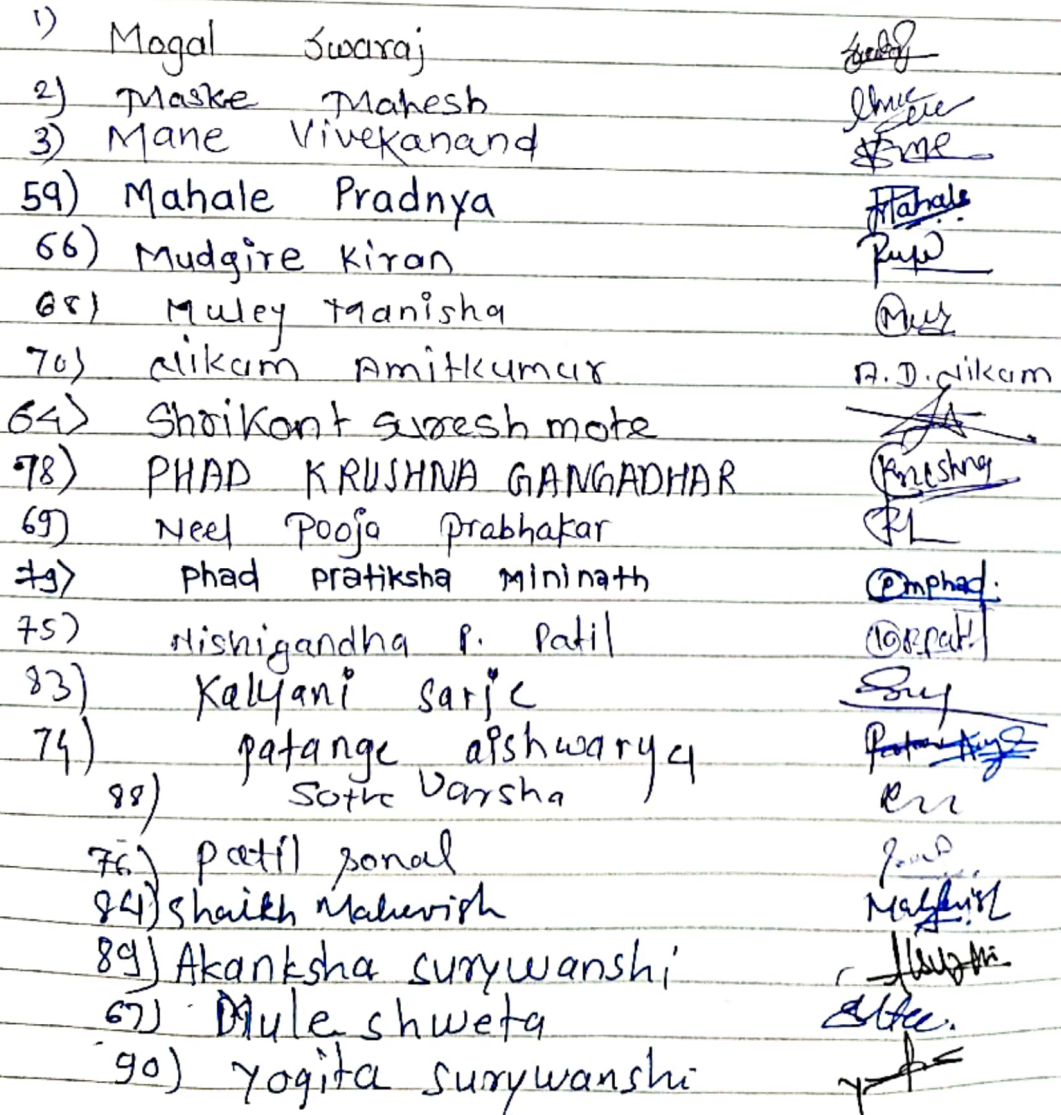 1) Mogal Swaraj
2) Maske Mahesh
3) Mane Vivekanand
59) Mahale Pradnya Mahale
66) Mudgire Kiran
68) Muley Manisha
70) Nikam Amitkumar A.D. Nikam
64) Shrikant Suresh mote
78) PHAD KRUSHNA GANGADHAR Krushna
69) Neel Pooja Prabhakar
79) Phad Pratiksha Mininath Pmphad.
75) Nishigandha P. Patil
83) Kalyani Sarje
74) patange aishwarya
88) Sothe Varsha
76) Patil Sonal
84) Shaikh Mahevish
89) Akanksha Surywanshi
67) Mule shweta
90) Yogita Surywanshi